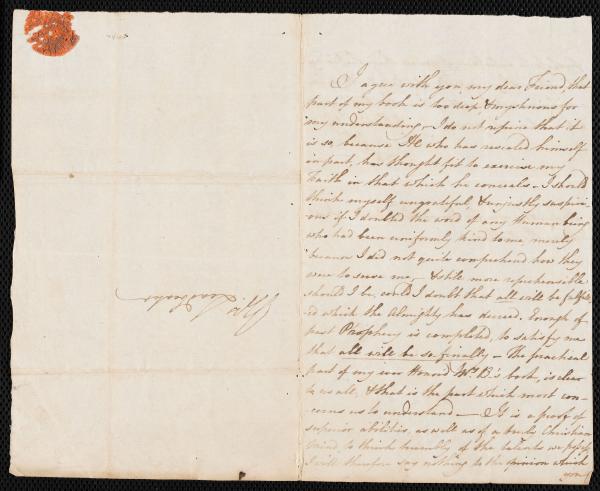 I agree with you, my dear Friend, that
part of my book is too deep, & mysterious for
my understanding, - I do not repine that it
is so, because He who has revealed himself
in part, has thought fit to exercise my
Faith in that which he conceals - I should
think myself ungrateful, & unjustly suspici-
ous if I doubted the word of any Human being
who had been uniformly kind to me, merely
because I did not quite comprehend how they
were to serve me, - & still more reprehensible
should I be, could I doubt that all will be fulfill-
ed which the Almighty has decreed. Enough of
past Prophecy is completed, to satisfy me
that all will be so finally - The practical
part of my ever Honord Mr. B's book, is clear
to us all, & that is the part which most con-
cerns us to understand - It is a proof of
superior abilities, as well as of a truly Christian
mind, to think humbly of the talents we possess
I will therefore say nothing to the opinion which
you
Mrs. Leadbeater